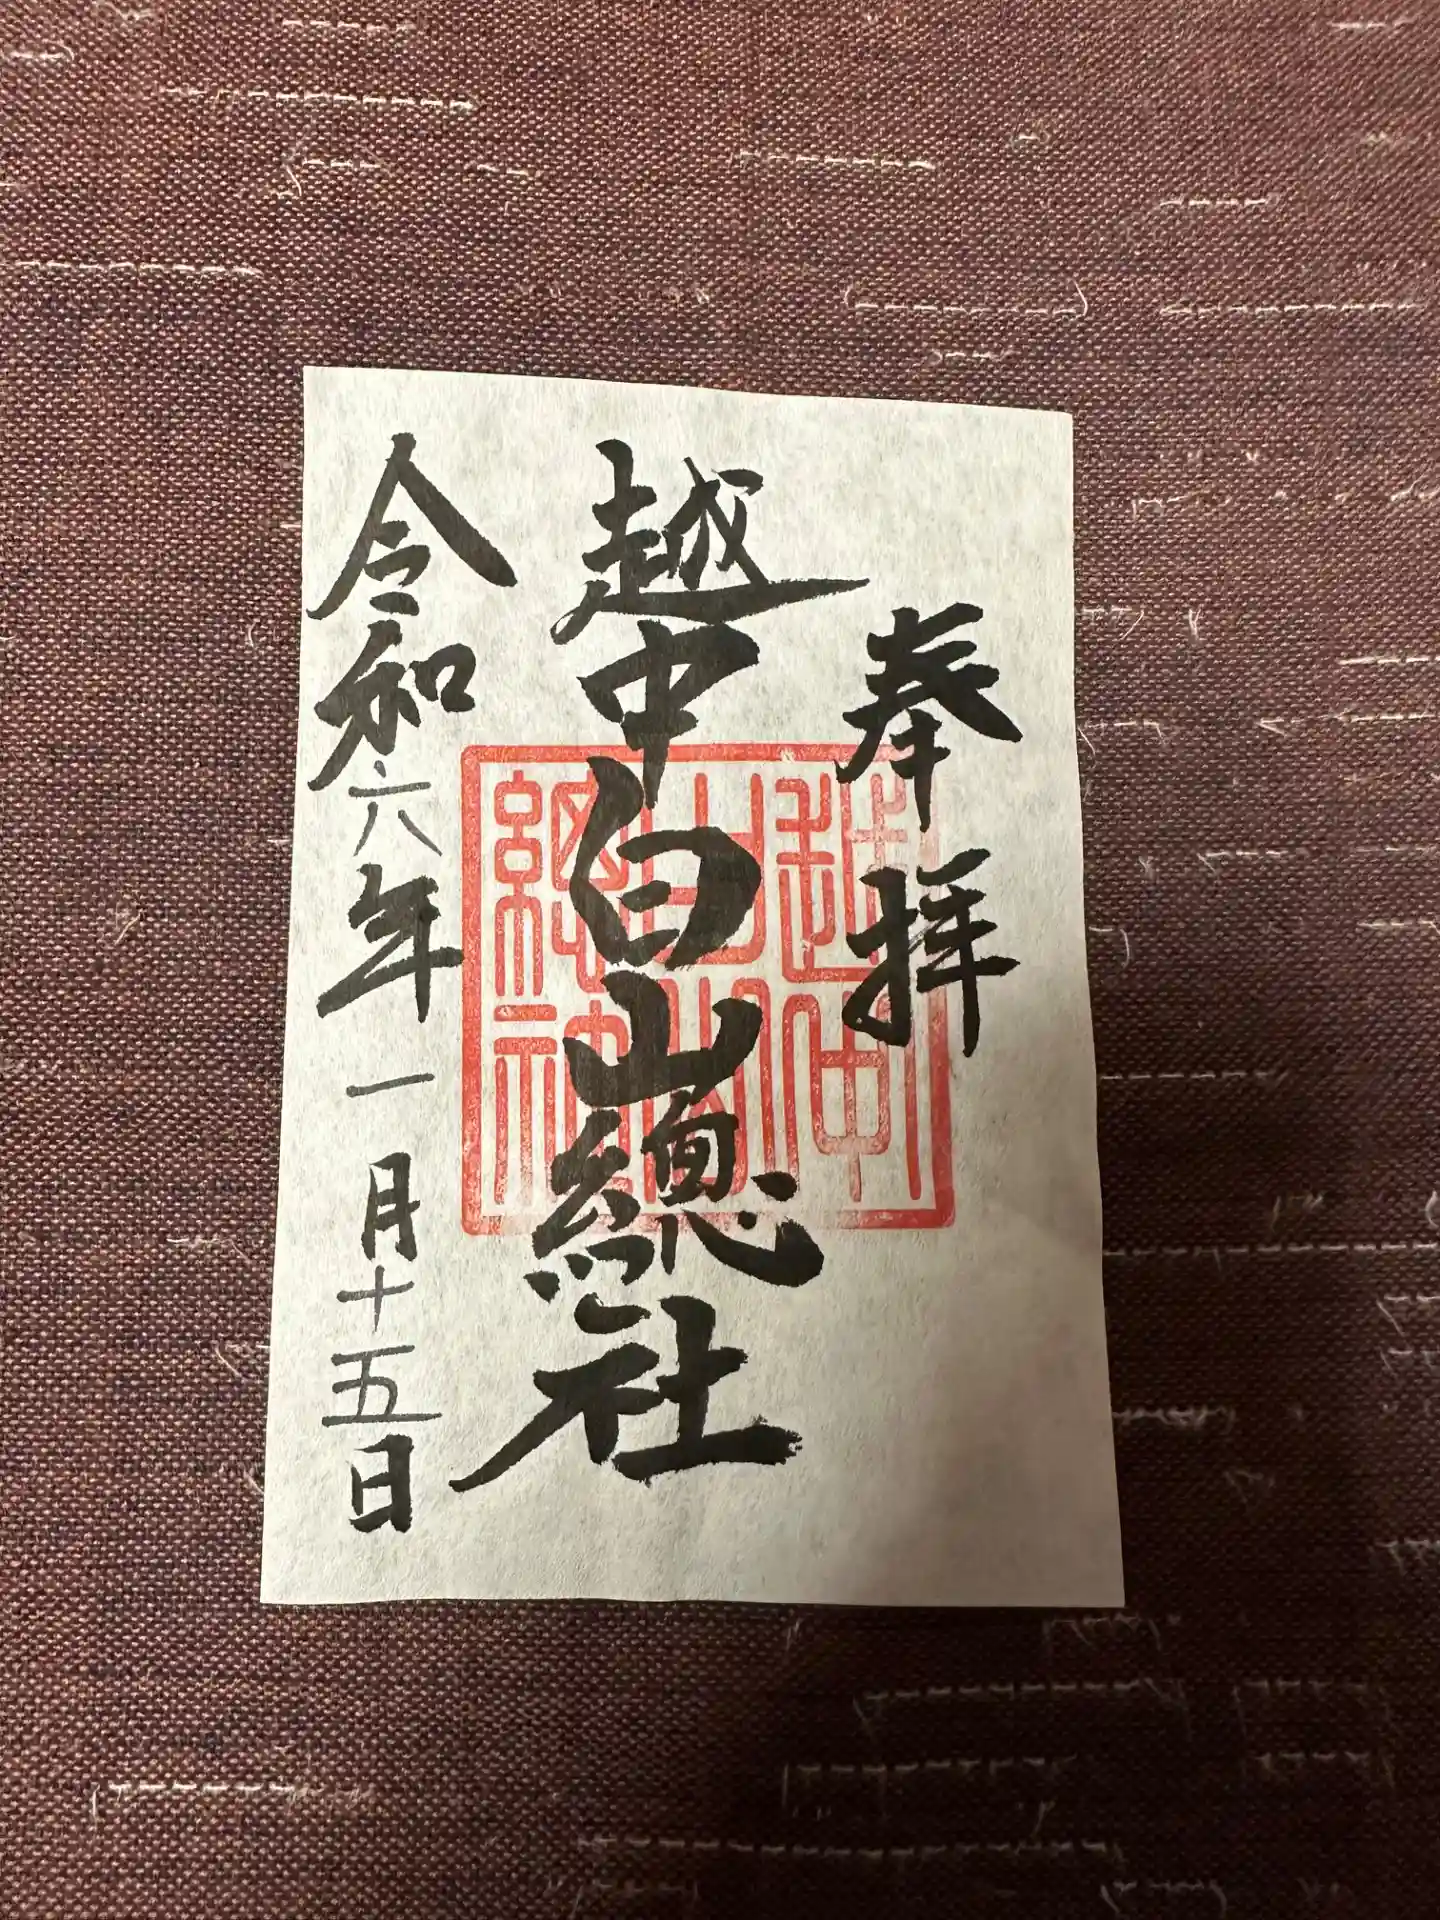 奉拝
越中白山總社
令和六年一月十五日
越中
白山
總社